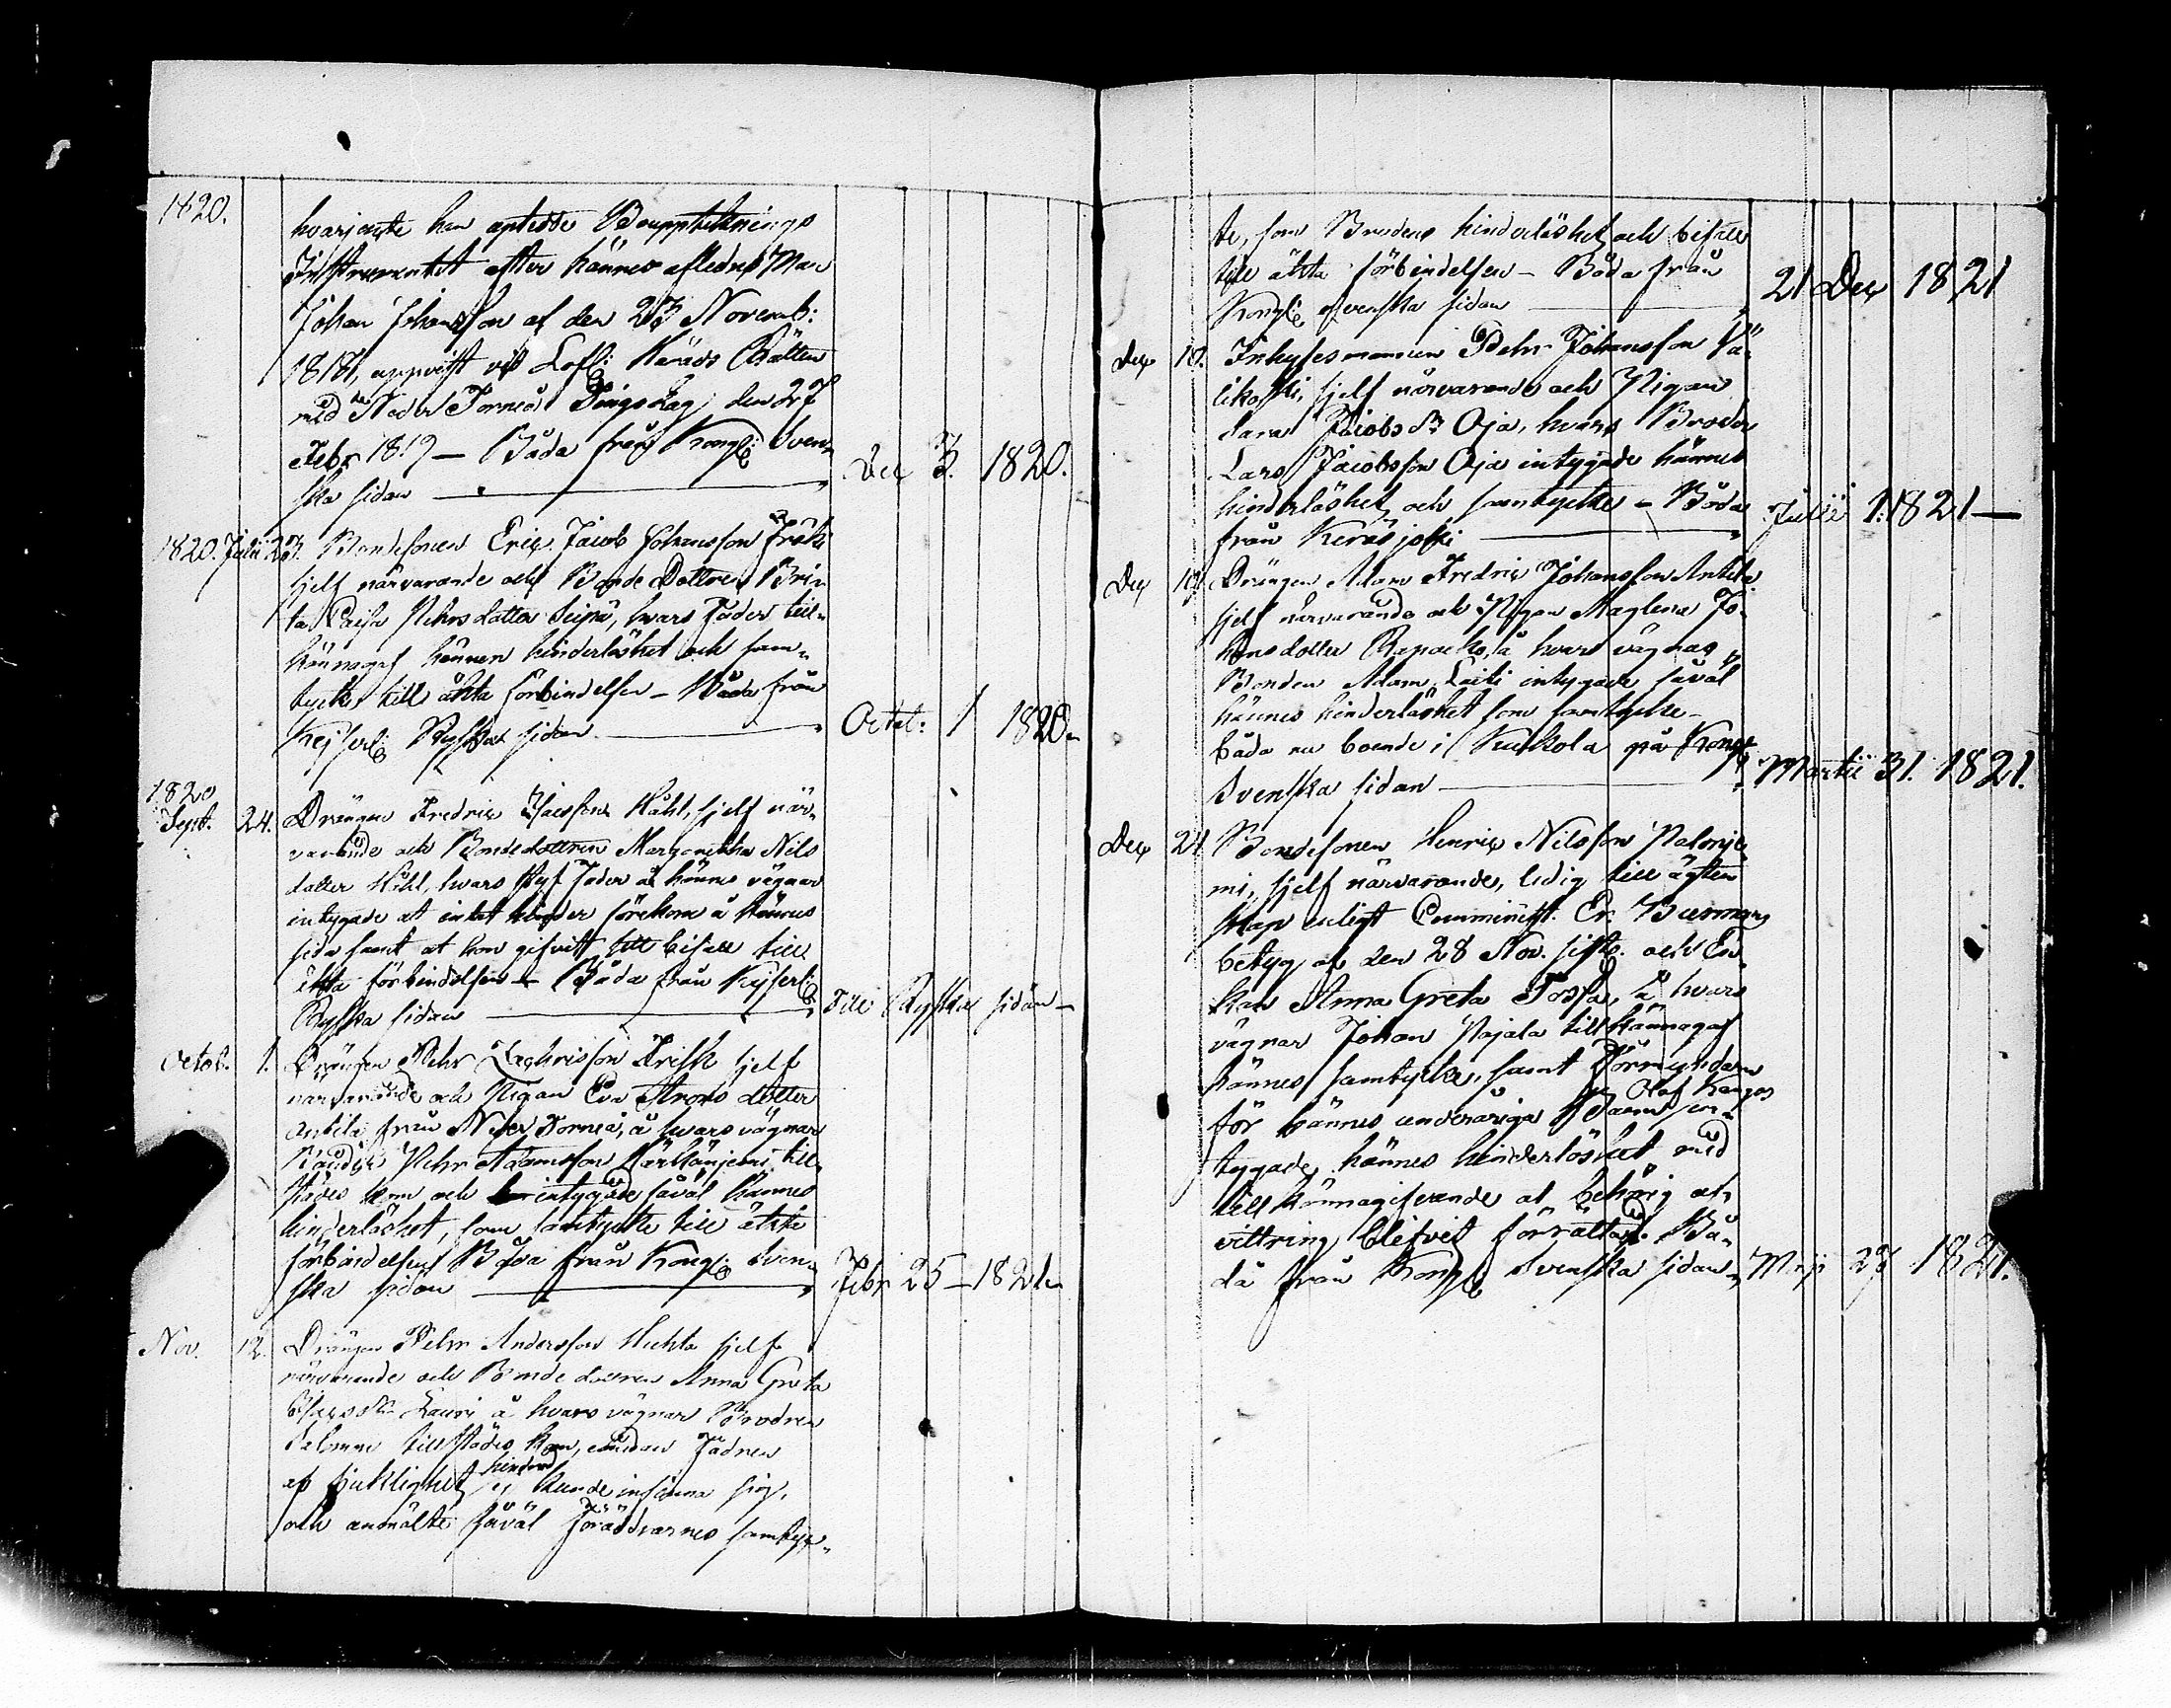 1820.
hvarjemte han aptedde Bouppteknings
Instrumentet efter hännes aflednes Man
Johan Johansson af den 23 Novemb:
1818, uppvist vid Lofl: Härads Rätten
med Neder Torneå Tings Lag den 27
Febr 1819 — Båda från Kongl: Sven-
ska sidan — Dec 3. 1820.
1820. Julii 23. Bondesonen Eric Jacob Johansson Friski
sjelf närvarande och Bonde Dottren Bri-
ta Caisa Pehrsdotter Seipä, hvars Fader till-
kännagaf hännes hinderlöshet och sam-
tycke till äkta förbindelsen — Båda från
Kejserl: Ryska sidan — Octob: 1 1820.
1820
Sept. 24. Drängen Fredric Isacsson Kåhl, sjelf när-
varande och Bondedottren Margaretha Nils
dotter Kåhl, hvars Styf Fader å hännes vägnar
intygade at intet hinder förekom å hännes
sida samt at hon gifvit sitt bifall till
äkta förbindelsen — Båda från Kejserl:
Ryska sidan — Till Ryska sidan —
Octob. 1. Drängen Pehr Zachrisson Frisk sjelf
närvarande och Pigan Eva Arons dotter
Antila från Neder Torneå, å hvars vägnar
Pehr Adamsson till-
städes kom och intygade såväl hännes
hinderlöshet, som samtycke till äkta
förbindelsen Båda från Kongl: Sven-
ska sidan — Febr 25 — 1821.
Nov. 12. Drängen Pehr Andersson Huhta sjelf
närvarande och Bonde dottren Anna Greta
Lauri å hvars vägnar Brodren
Salomon tillstädes kom, emedan Fadren
af sjuklighet hindrad ej kunde infinna sig,
och anmälte såväl Föräldrarnes samtyc-
te, som Brudens hinderlöshet och bifall
till äkta förbindelsen — Båda från
Kongl: Svenska sidan — 21 Dec 1821
Dec 10. Inhysesmannen Pehr Johansson Vä-
likoski, sjelf närvarande och Pigan
Sara Jacobs Dr Oja, hvars Broder
Lars Jacobsson Oja intygade hännes
hinderlöshet och samtycke — Båda
från Keräsjoki — Julii 1. 1821 —
Dec Drängen Adam Fredric Johansson Antila
sjelf närvarande och Pigan Maglena Jo-
hansdotter å hvars vägnas
Bonden Adam Laiti intygade såväl
hännes hinderlöshet som samtycke —
båda nu boende i Kuckola på Kongl
Svenska sidan — Martii 31. 1821.
Dec 24 Bondesonen Henric Nilsson Palonje-
mi, sjelf närvarande, ledig till ägten
skap enligt Comminist. Er. Burmans
betyg af den 28 Nov. sistl. och En-
kan Anna Greta å hvars
vägnar Johan Pajala tillkännagaf
hännes samtycke, samt Förmyndaren
för hännes underåriga Barn Olof Kangas in-
tygade hännes hinderlöshet med
tillkännagifvande at behörig af-
vittring blifvit förrättad. Bå-
da från Kongl Svenska sidan — Maji 27 1821.